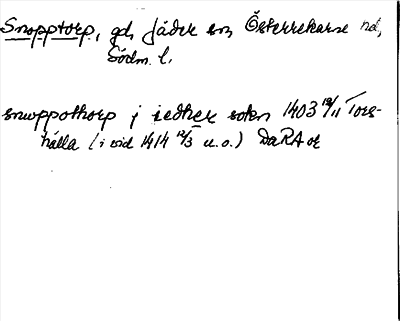 Snopptorp, gd, Jäder sn, Österrekarne hd,
Södm. l.
snwppothorp j iedher sokn 1403 12/11 Tors-
hälla (i vid 1414 12/3 u.o.) DaRA or